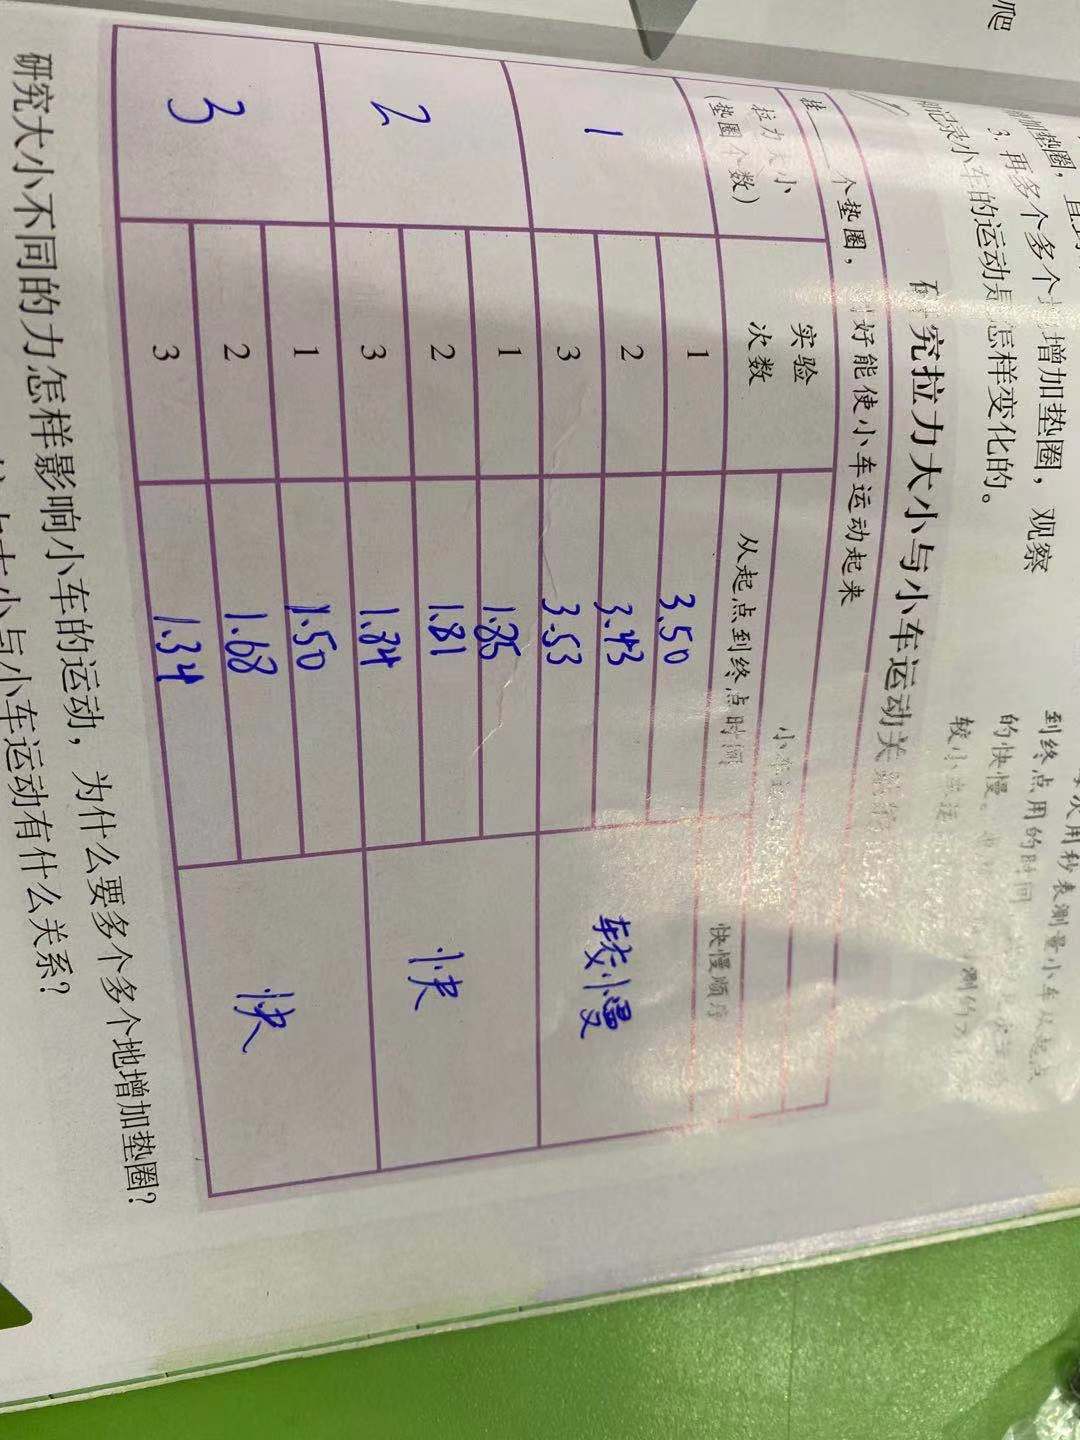 爬
3. 再多个多个
增加垫圈，观察
记录小车的运动是怎样变化的。
次用秒表测量小车从起点
到终点用的时间
的快慢。
究拉力大小与小车运动关
个垫圈，
好能使小车运动起来
拉力大小
（垫圈个数）
实验
次数
从起点到终点时间
快慢顺序
1
1
3.50
较小慢
2
3.43
3
3.53
2
1
1.85
快
2
1.81
3
1.84
3
1
1.50
快
2
1.68
3
1.34
研究大小不同的力怎样影响小车的运动，为什么要多个多个地增加垫圈？
大小与小车运动有什么关系？